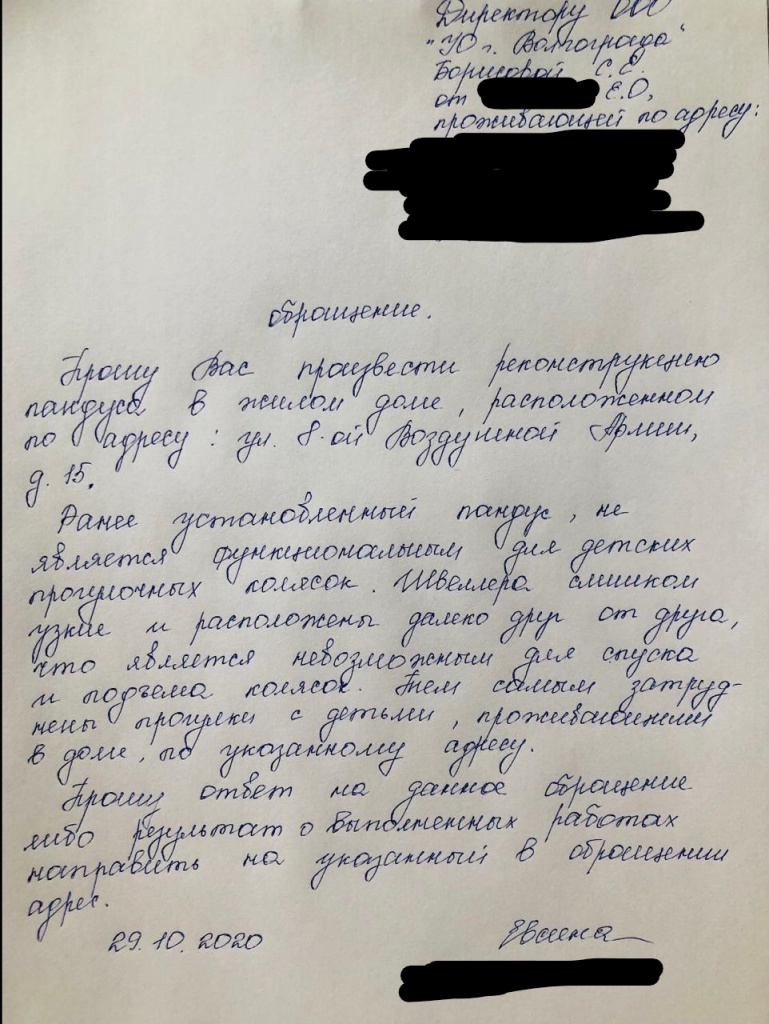 Директору ООО
"УО г. Волгограда"
Борисовой С.Е.
от Е.О,
проживающей по адресу:
обращение.
Прошу Вас произвести реконструкцию
пандуса в жилом доме, расположенном
по адресу: ул. 8-ой Воздушной Армии,
д. 15.
Ранее установленный пандус, не
является функциональным для детских
прогулочных колясок. Швеллера слишком
узкие и расположены далеко друг от друга,
что является невозможным для спуска
и подъема колясок. Тем самым затруд-
нены прогулки с детьми, проживающими
в доме, по указанному адресу.
Прошу ответ на данное обращение
либо результат о выполненных работах
направить на указанный в обращении
адрес.
29.10.2020